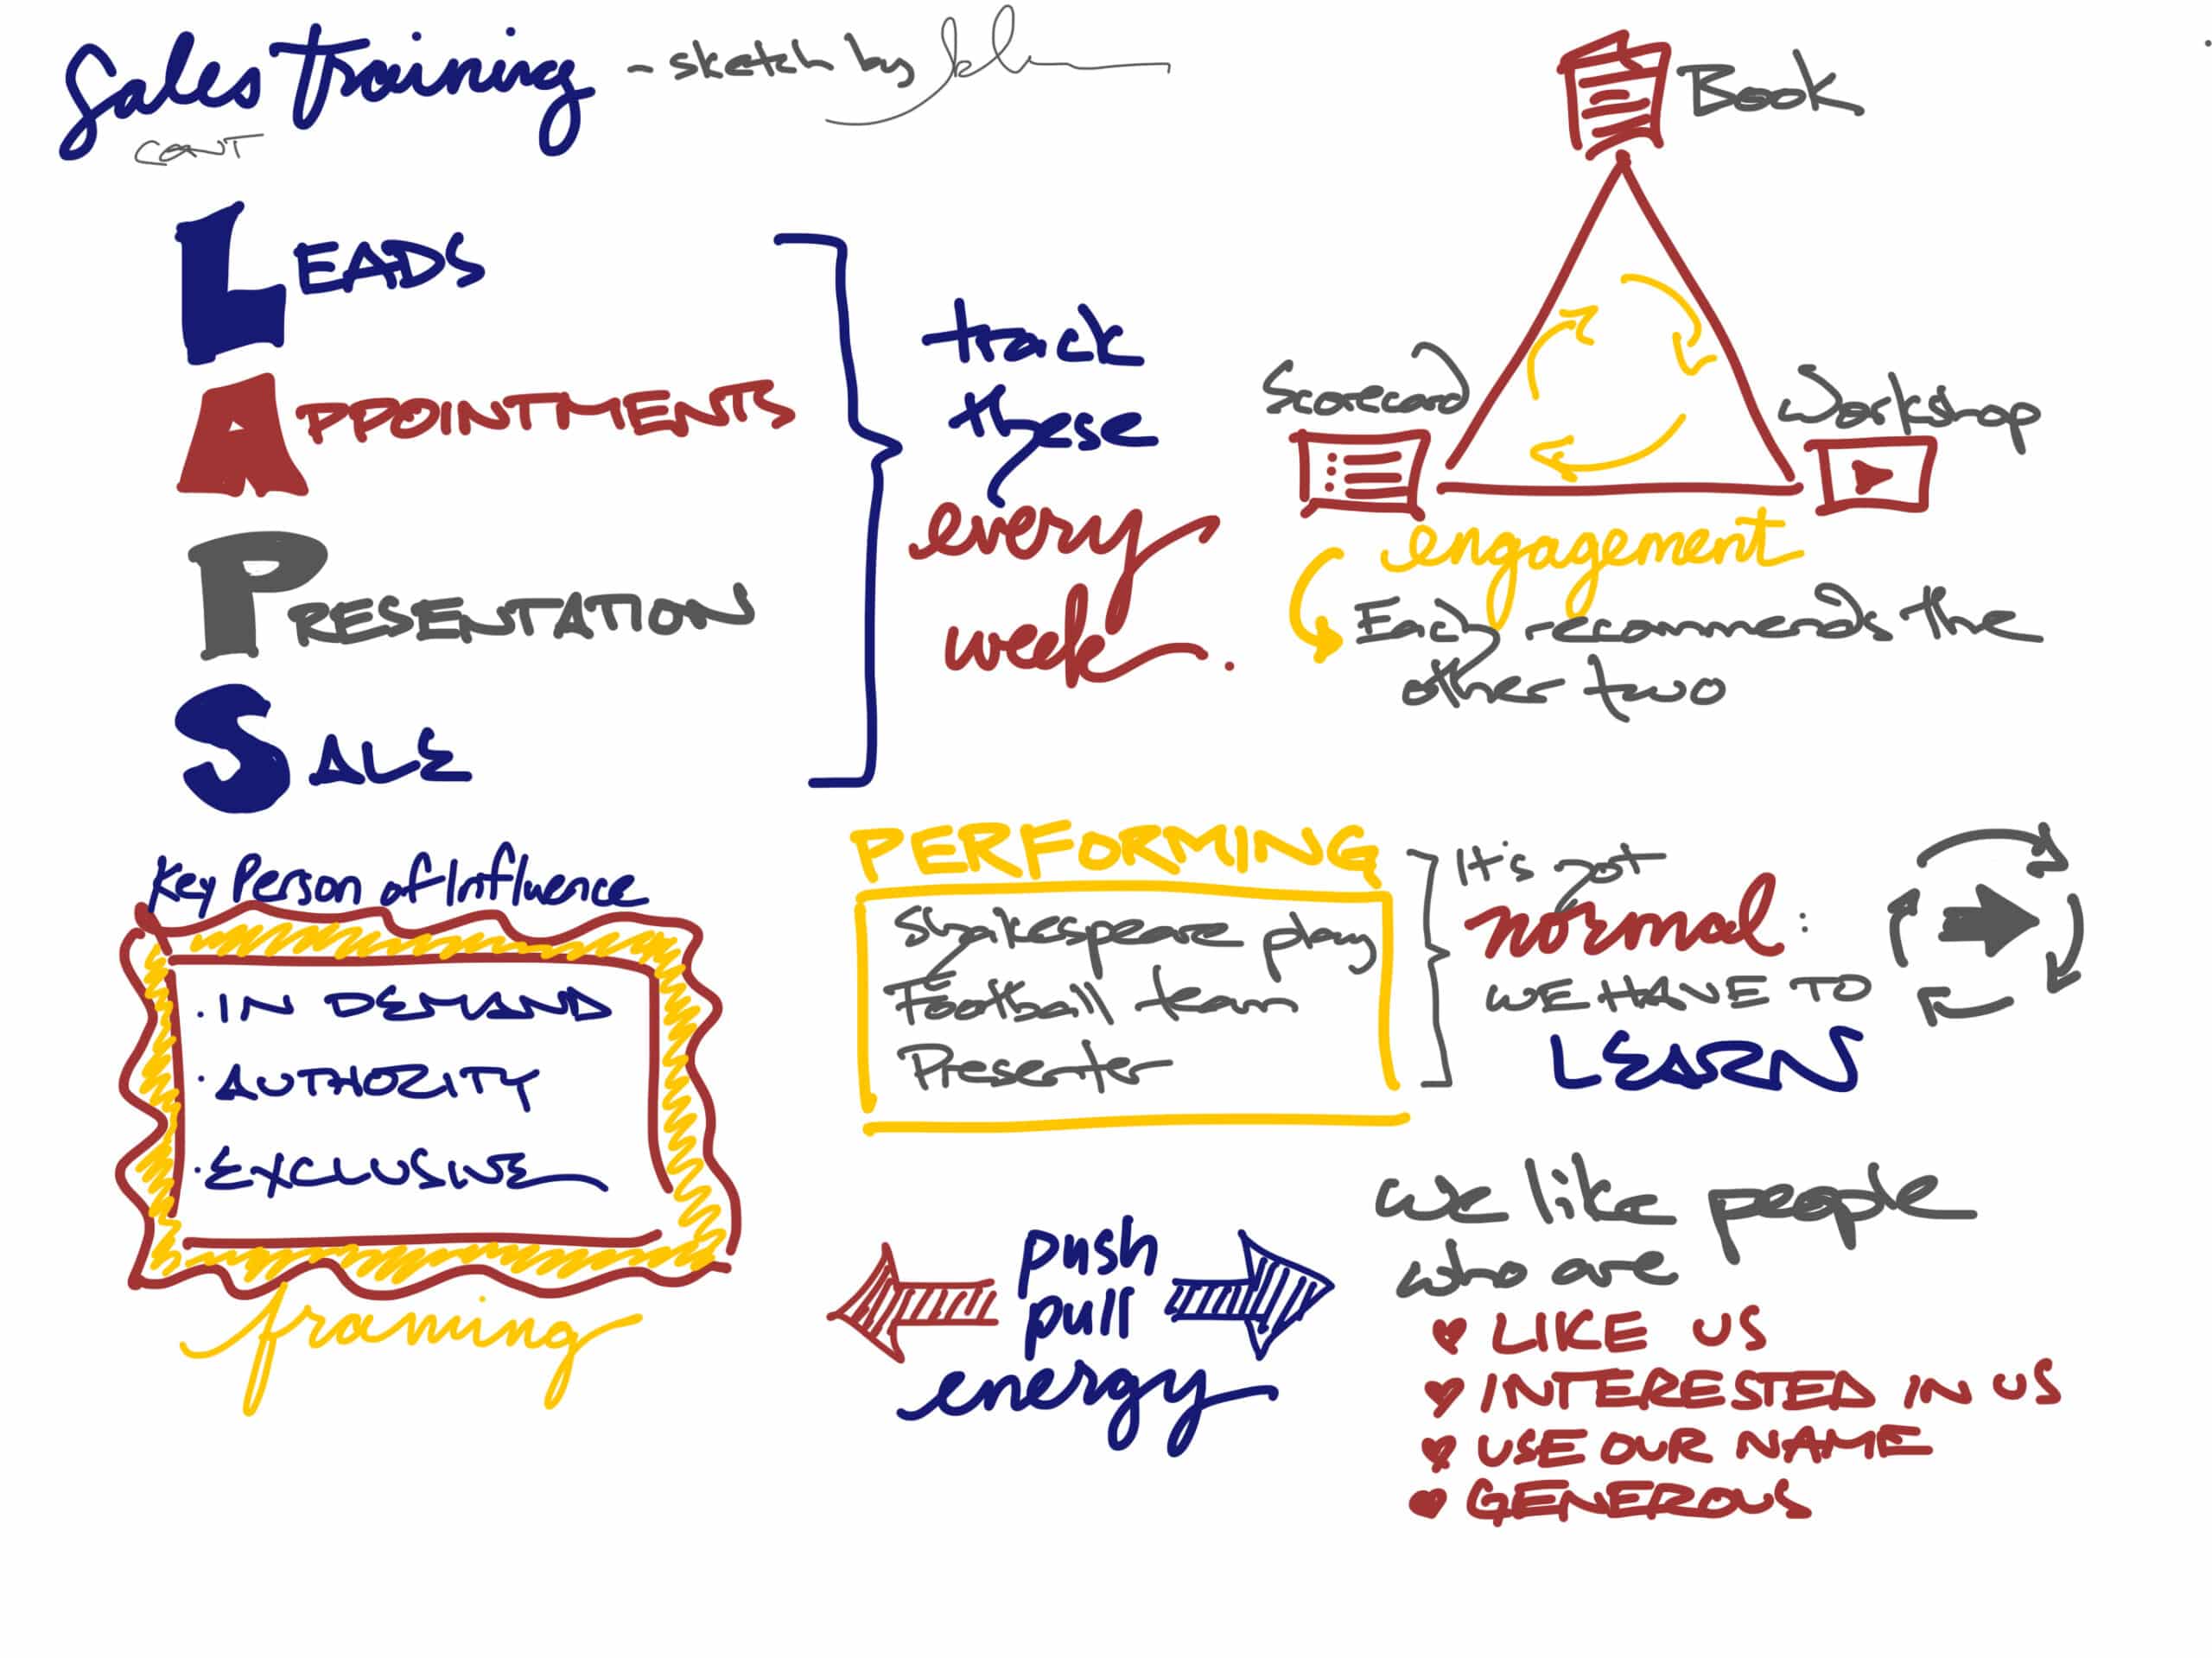 Sales Training - sketch by
CONT
LEADS
APPOINTMENTS
PRESENTATION
SALE
track
these
every
week.
Book
Scorecard
Workshop
engagement
Each recommends the
other two
Key Person of Influence
· IN DEMAND
· AUTHORITY
· EXCLUSIVE
framing
PERFORMING
Shakespeare play
Football team
Presenter
It's not
normal:
WE HAVE TO
LEARN
push
pull
energy
we like people
who are
LIKE US
INTERESTED IN US
USE OUR NAME
GENEROUS